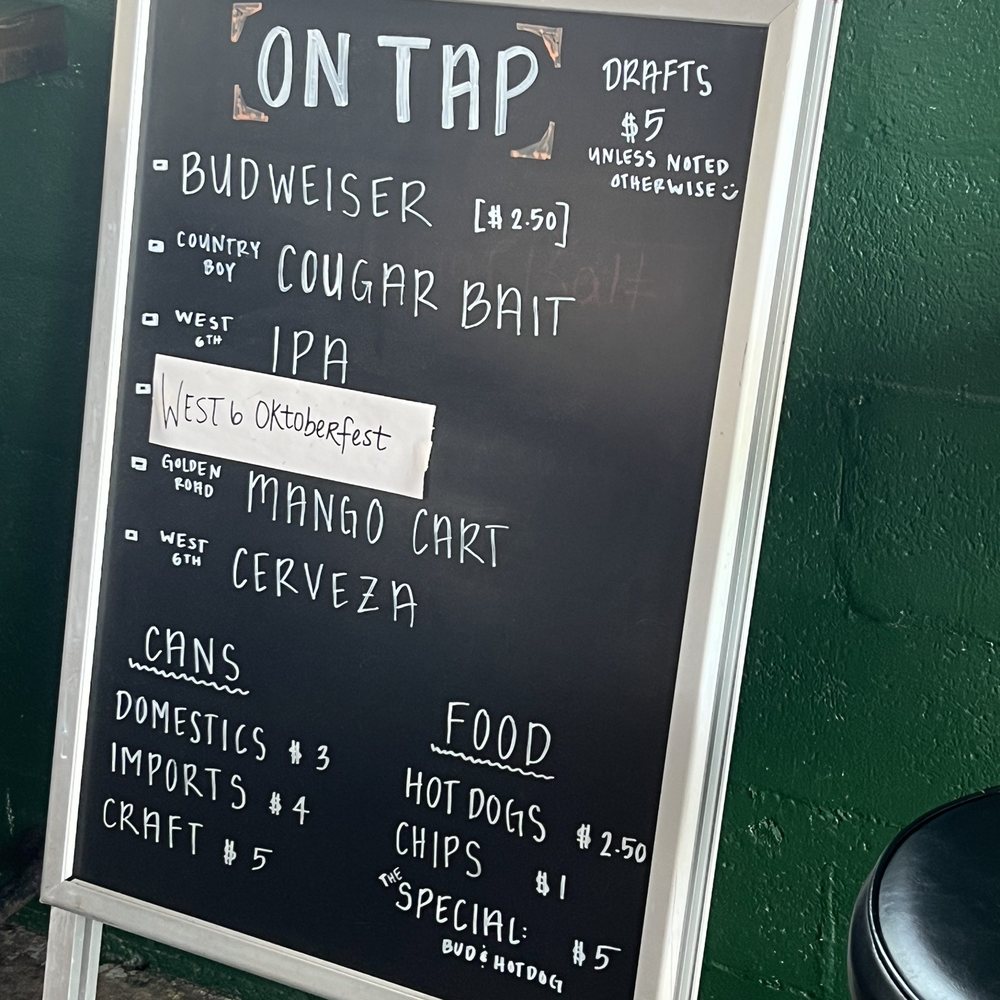 ON TAP
DRAFTS
$5
UNLESS NOTED
OTHERWISE
BUDWEISER [$2.50]
COUNTRY BOY COUGAR BAIT
WEST 6TH IPA
WEST 6 OKtoberfest
GOLDEN ROAD MANGO CART
WEST 6TH CERVEZA
CANS
DOMESTICS $3
IMPORTS $4
CRAFT $5
FOOD
HOT DOGS $2.50
CHIPS $1
THE SPECIAL: $5
BUD & HOTDOG